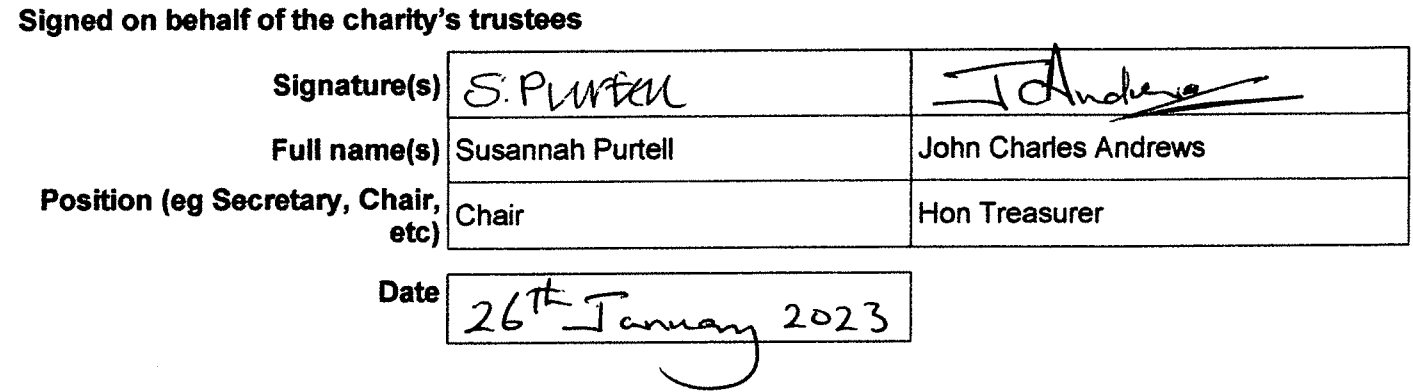 Signed on behalf of the charity's trustees
Signature(s) S. Purtell J C Andrews
Full name(s) Susannah Purtell John Charles Andrews
Position (eg Secretary, Chair, etc) Chair Hon Treasurer
Date 26th January 2023